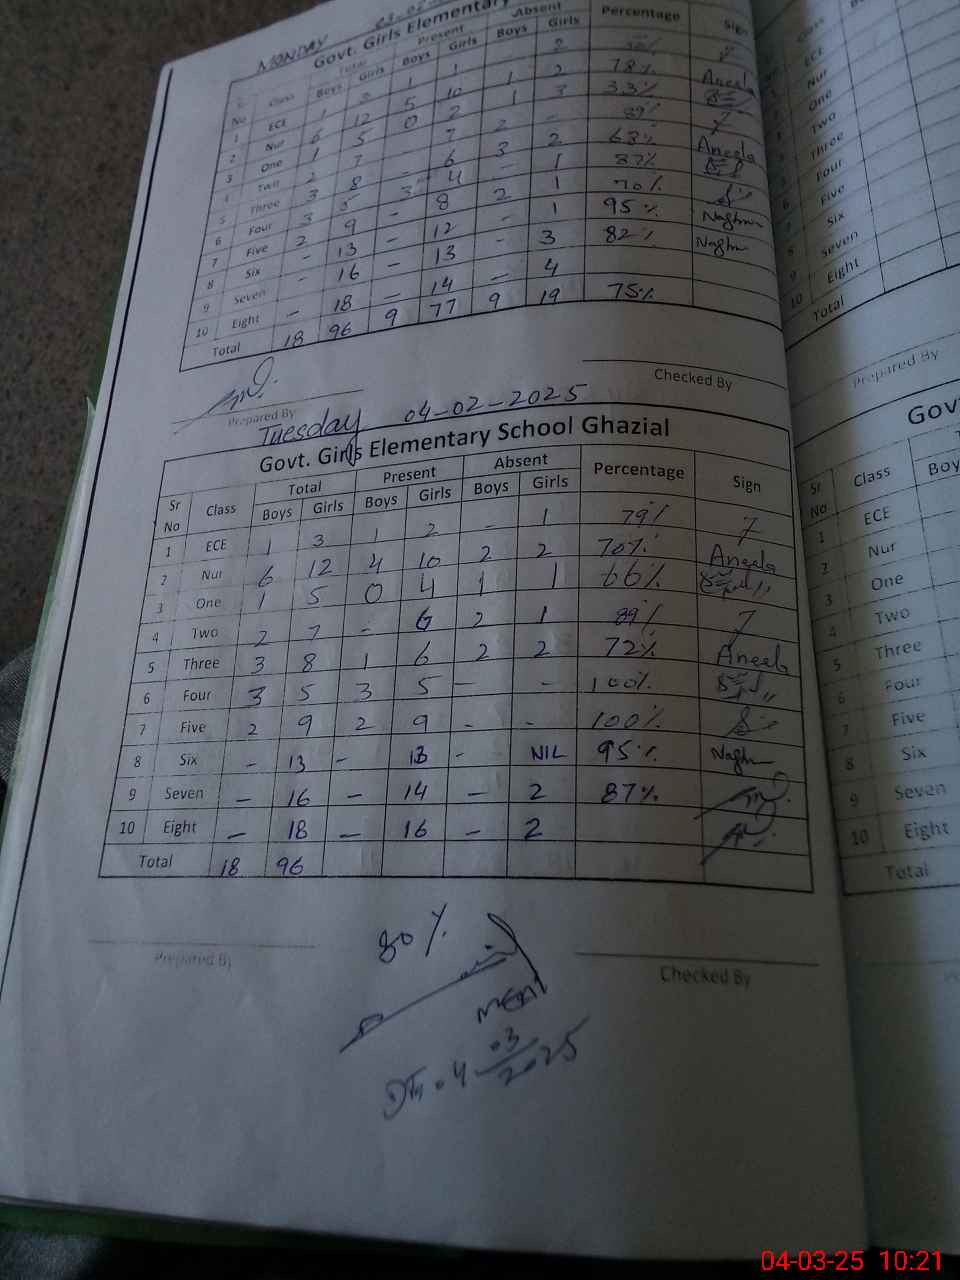 MONDAY
Govt. Girls Elementary
Total Present Absent Percentage Sign
No Class Boys Girls Boys Girls Boys Girls
1 ECE
2 Nur 6 12 5 10 1 2 78% Aneela
3 One 1 5 0 2 1 3 33%
4 Two 2 7 - 7 2 - 89%
5 Three 3 8 6 3 2 63% Aneela
6 Four 3 5 3 4 - 1 87%
7 Five 2 9 - 8 2 1 70%
8 Six - 13 - 12 - 1 95% Naghm
9 Seven - 16 - 13 - 3 82% Naghm
10 Eight - 18 - 14 - 4
Total 18 96 9 77 9 19 75%
Prepared By Checked By
Tuesday 04-02-2025
Govt. Girls Elementary School Ghazial
Sr No Class Total Present Absent Percentage Sign
Boys Girls Boys Girls Boys Girls
1 ECE 1 3 1 2 - 1 79%
2 Nur 6 12 4 10 2 2 70% Aneela
3 One 1 5 0 4 1 1 66%
4 Two 2 7 - 6 2 1 89%
5 Three 3 8 1 6 2 2 72% Aneela
6 Four 3 5 3 5 - - 100%
7 Five 2 9 2 9 - - 100%
8 Six - 13 - 13 - NIL 95% Naghm
9 Seven - 16 - 14 - 2 87%
10 Eight - 18 - 16 - 2
Total 18 96
80%
Prepared By Checked By
03
2025
Class
ECE
Nur
One
Two
Three
Four
Five
Six
Seven
10 Eight
Total
Prepared By
Gov
Sr No Class Boy
1 ECE
2 Nur
3 One
4 Two
5 Three
6 Four
7 Five
8 Six
9 Seven
10 Eight
Total
04-03-25 10:21